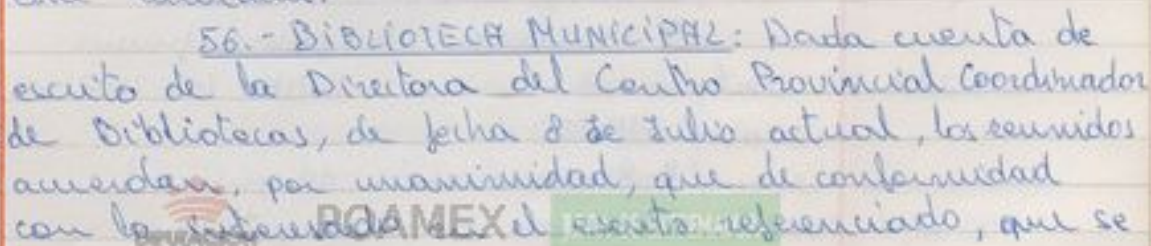 56.- BIBLIOTECA MUNICIPAL: Dada cuenta de
escrito de la Directora del Centro Provincial Coordinador
de Bibliotecas, de fecha 8 de Julio actual, los reunidos
acuerdan, por unanimidad, que de conformidad
con lo interesado en el escrito referenciado, que se